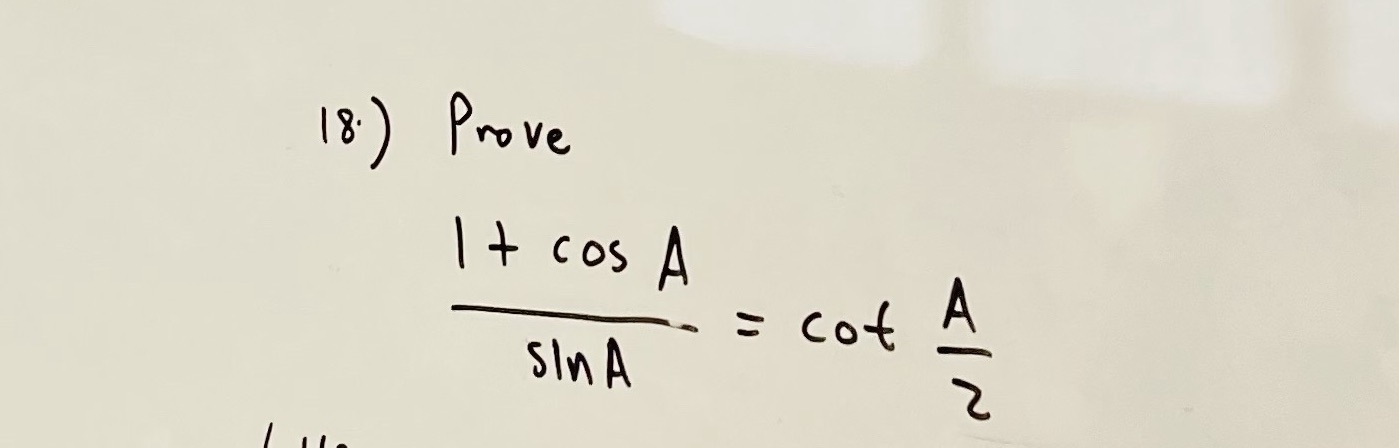 18.) Prove
1 + cos A
sin A
= cot A
2